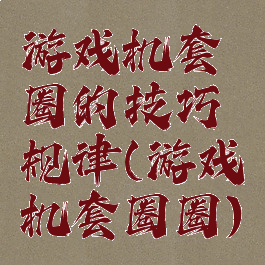 游戏机套
圈的技巧
规律(游戏
机套圈圈)